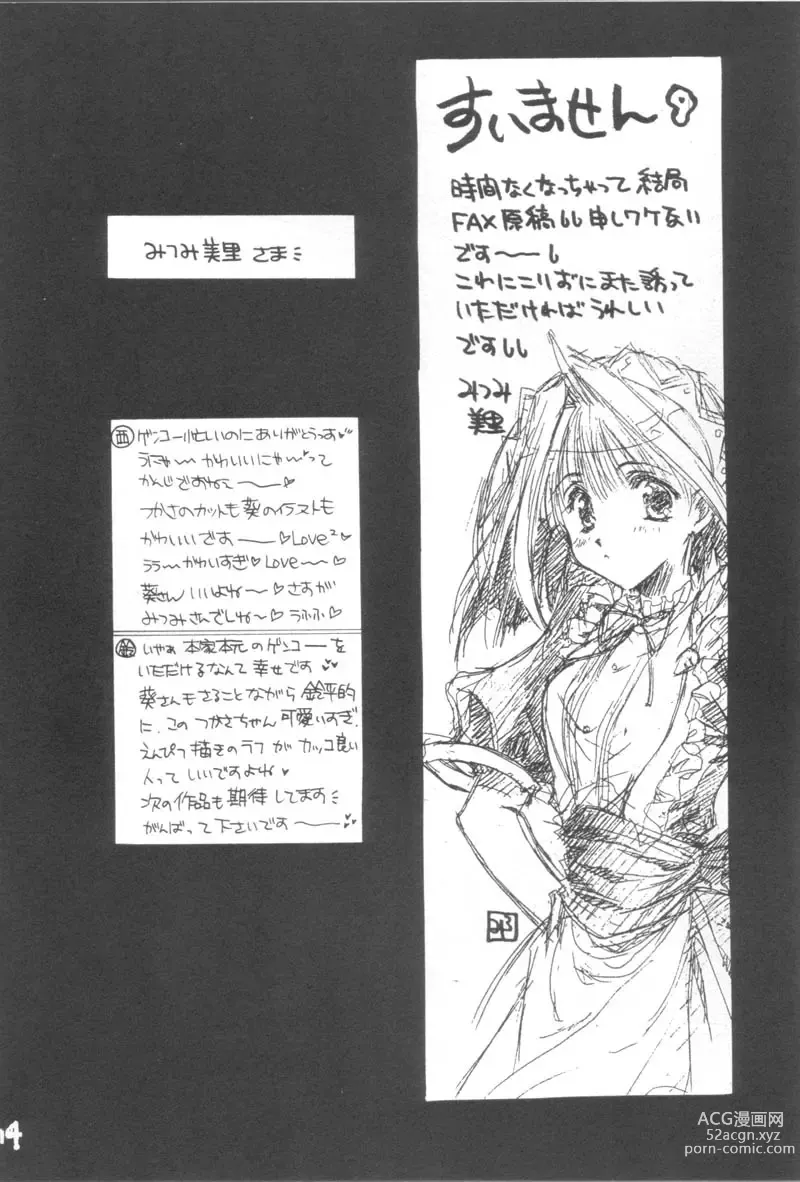 すいません
時間なくなっちゃって結局
FAX原稿 申しワケない
です〜〜
こりにこりずにまた誘って
いただければうれしい
です
みつみ
美里
みつみ美里さま
西 ゲンコー忙しいのにありがとうっす♥
うにゃ〜〜かわいいにゃ〜♥って
かんじですね〜〜♡
つかさのカットも葵のイラストも
かわいいです〜〜♡Love²
ううっ〜かわいすぎ♥Love〜〜♡
葵さんいいよね〜♡さすが
みつみさんでしね〜♡うふふ♡
鈴 いやぁ本家本元のゲンコーを
いただけるなんて幸せです♥
葵さんもさることながら鈴平的
に、このつかさちゃん可愛いすぎ。
えんぴつ描きのラフがカッコ良い
人っていいですよね♥
次の作品も期待してます
がんばって下さいです〜〜♥
み
14
ACG漫画网
52acgn.xyz
porn-comic.com